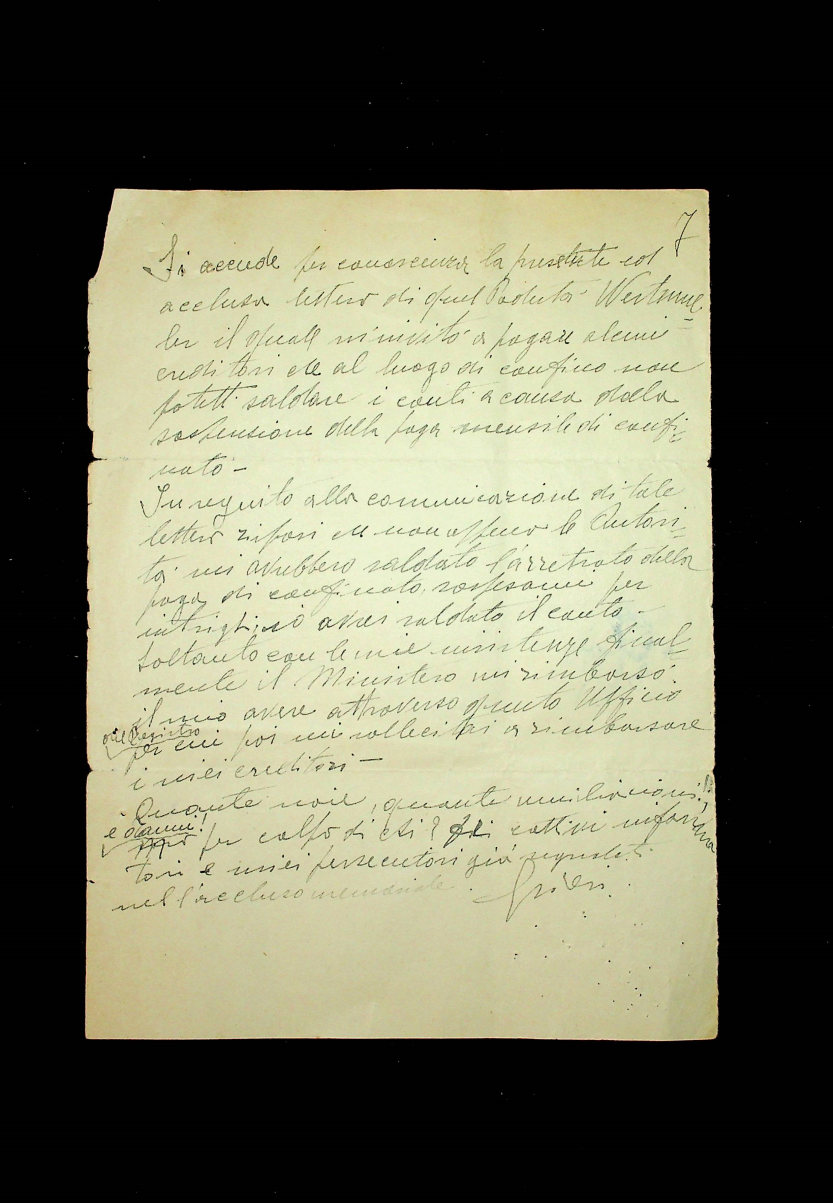 7
Si accede per conoscenza la presente col
accluso lettera di quel Podestà Wertmul=
ler il quale m'invitò a pagare alcuni
creditori che al luogo di confino non
potetti saldare i conti a causa della
sospensione della paga mensile di confi=
nato -
In seguito alla comunicazione di tale
lettera risposi che non appena le Autori=
tà mi avrebbero saldato l'arretrato della
paga di confinato, sospesami per
intrighi, io avrei saldato il conto -
Soltanto con le mie insistenze final=
mente il Ministero mi rimborsò
il mio avere attraverso questo Ufficio
del Registro
per cui poi mi sollecitai a rimborsare
i miei creditori -
Quante noie, quante umiliazioni!
e danni!
per colpa di chi? Dei cattivi infor
tori e miei persecutori già segnalati
nell'accluso memoriale.